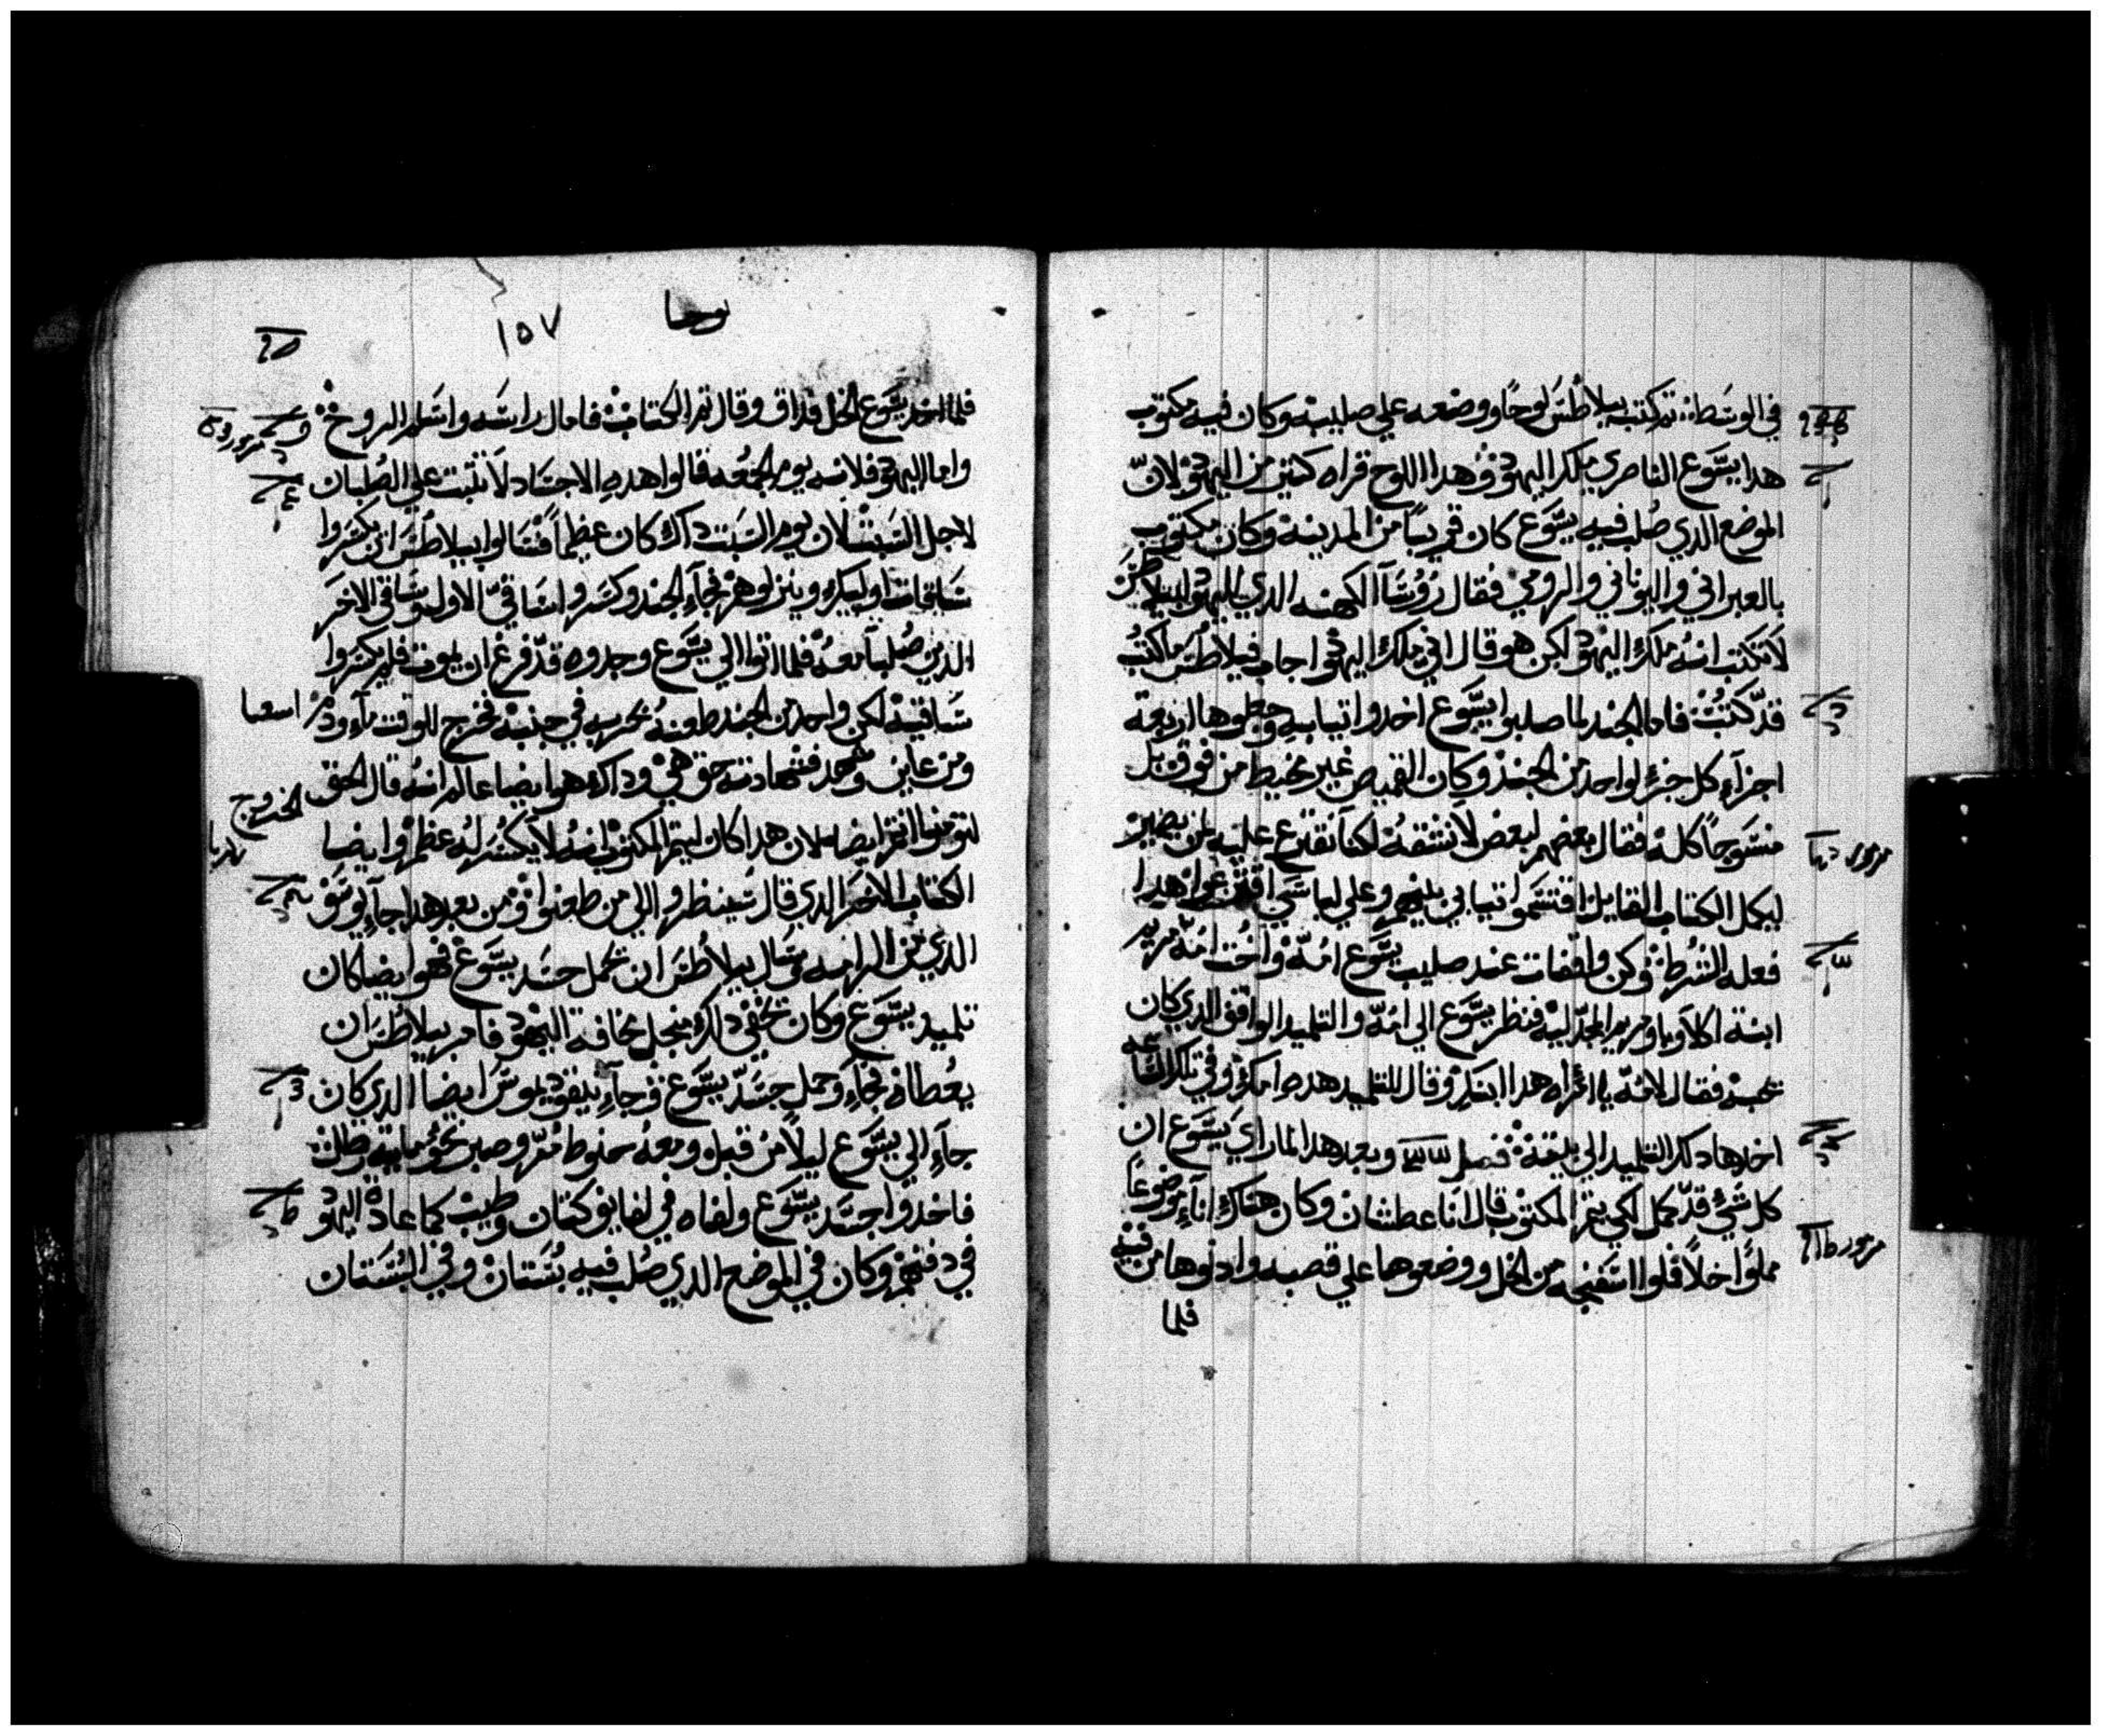 في الوسط ثم كتب بيلاطس لوحا ووضعه علي صليبه وكان فيه مكتوب
هدا يسوع الناصري ملك اليهود وهدا اللوح قراه كتير من اليهود لان
الموضع الدي صلب فيه يسوع كان قريبا من المدينة وكان مكتوب
بالعبراني واليوناني والرومي فقال روسآ الكهنه الدي لليهود لبيلاطس
لا تكتب انه ملك اليهود لكن هو قال اني ملك اليهود اجاب فيلاطس ما كتبت
قد كتبت فاما الجند لما صلبوا يسوع اخدوا تيابه وجعلوها اربعة
اجزآء كل جزء لواحد من الجند وكان القميص غير مخيط من فوق بل
منسوجا كله فقال بعضهم لبعض لا نشقه لكنا نقترع عليه لمن يصير
ليكمل الكتاب القايل اقتسموا تيابي بينهم وعلي لباسي اقترعوا هدا
فعله الشرط وكن واقفات عند صليب يسوع امه واخت امه مريم
ابنة اكلاوبا ومريم المجدلية فنظر يسوع الي امه والتلميد الواقف الدي كان
يحبه فقال لامه يا امراه هدا ابنك وقال للتلميد هده امك وفي تلك الساعه
اخدها دلك التلميد الي بيته فصل وبعد هدا لما راي يسوع ان
كل شي قد كمل لكي يتم المكتوب قال انا عطشان وكان هناك انآء موضوعا
مملوا خلا فملوا اسفنجه من الخل ووضعوها علي قصبه وادنوها من فيه
فلما
يوحنا
١٥٧
فلما اخد يسوع الخل فداق وقال تم الكتاب فامال راسه واسلم الروح
واما اليهود فلانه يوم الجمعه قالوا هده الاجساد لا تثبت علي الصلبان
لاجل السبت لان يوم السبت داك كان عظيما فسالوا بيلاطس ان يكسروا
ساقات اوليك وينزلوهم فجآء الجند وكسروا ساقي الاول وساقي الاخر
الدين صلبا معه فلما اتوا الي يسوع وجدوه قد فرغ ان يموت فلم يكسروا
ساقيه لكن واحد من الجند طعنه بحربه في جنبه فخرج للوقت مآء ودم
اسعيا
ومن عاين وشهد فشهادته حق هي وداك هو ايضا عالم انه قال الحق
الخروج
لتومنوا انتم ايضا لان هدا كان ليتم المكتوب انه لا يكسر له عظم وايضا
الكتاب الاخر الدي قال سينظروا الي من طعنوا ومن بعد هدا جآء يوسف
الدي من الرامه وسال بيلاطس ان يحمل جسد يسوع فهو ايضا كان
تلميد يسوع وكان يخفي دلك من اجل مخافة اليهود فامر بيلاطس ان
يعطاه فجآء وحمل جسد يسوع وجآء نيقوديموس ايضا الدي كان
جآء الي يسوع ليلا من قبل ومعه حنوط مر وصبر نحو ماية رطل
فاخدوا جسد يسوع ولفاه في لفايف كتان وطيب كما عادة اليهود
في دفنهم وكان في الموضع الدي صلب فيه بستان وفي البستان